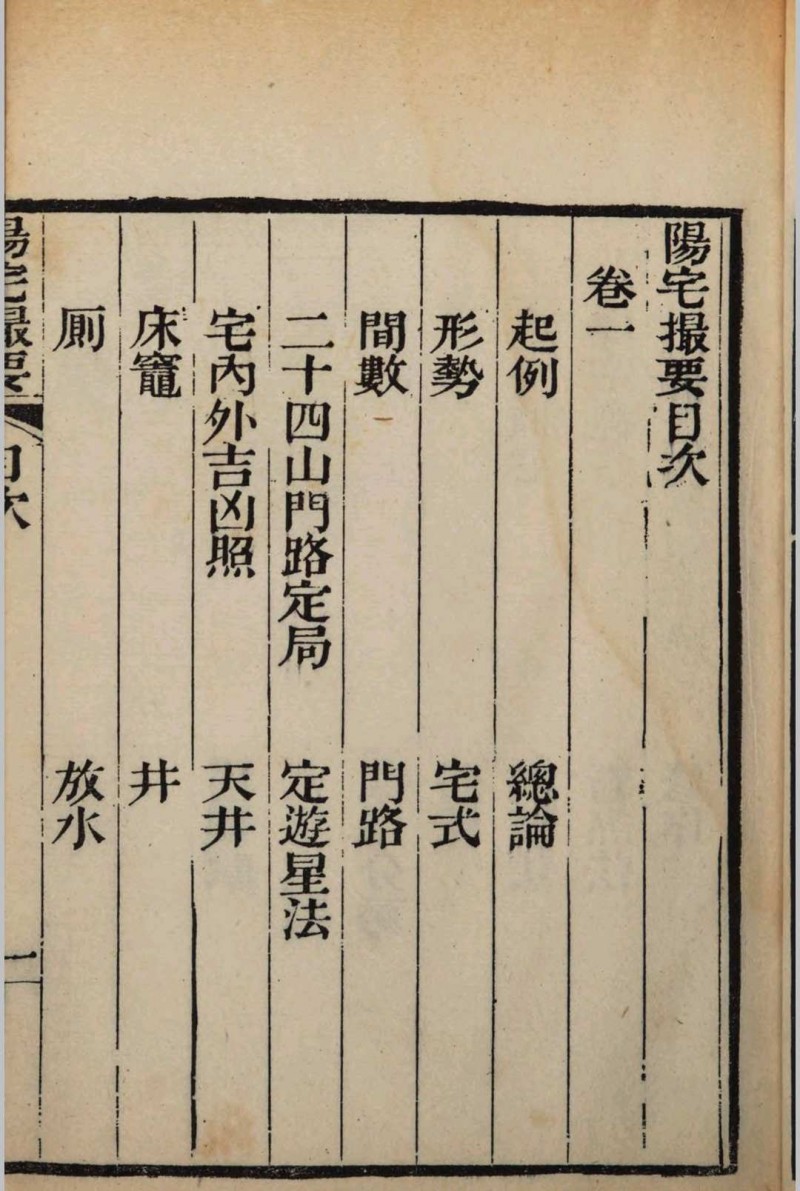 陽宅撮要目次
卷一
起例 總論
形勢 宅式
間數 門路
二十四山門路定局 定遊星法
宅內外吉凶照 天井
床竈 井
厠 放水
陽宅撮要 目次 一